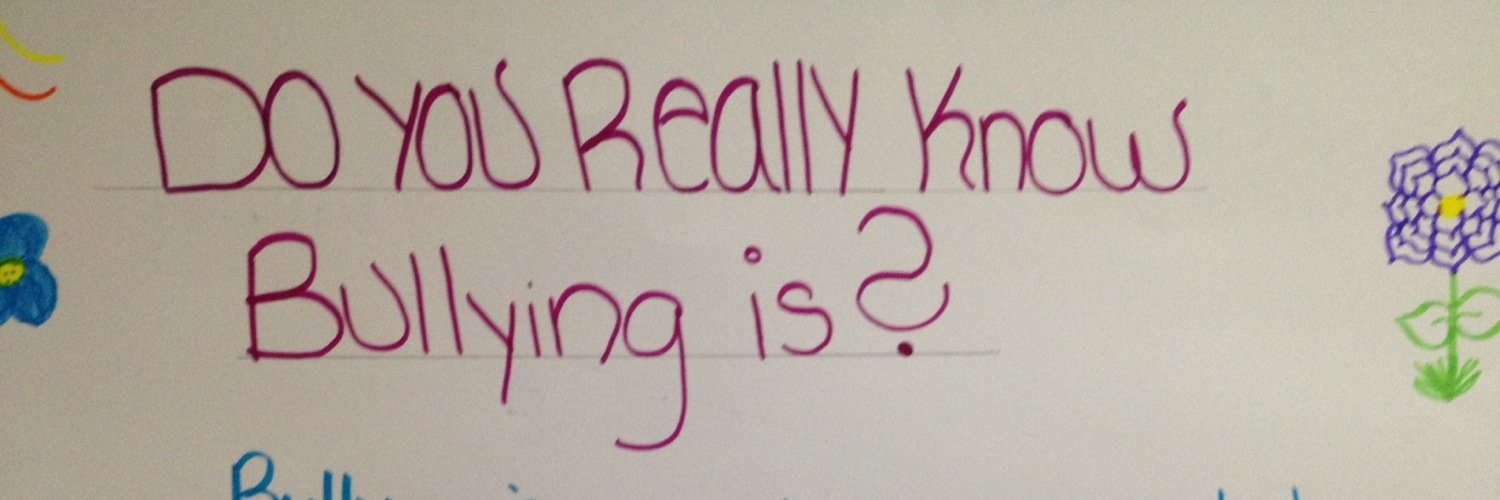 Do You Really Know
Bullying is?